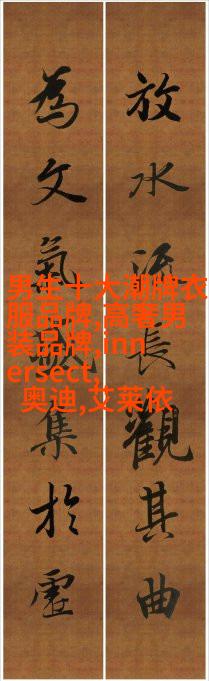 放水流長觀其曲
為文氣集於虛
男生十大潮牌衣
服品牌,高奢男
装品牌,inn
ersect,
奥迪,艾莱依